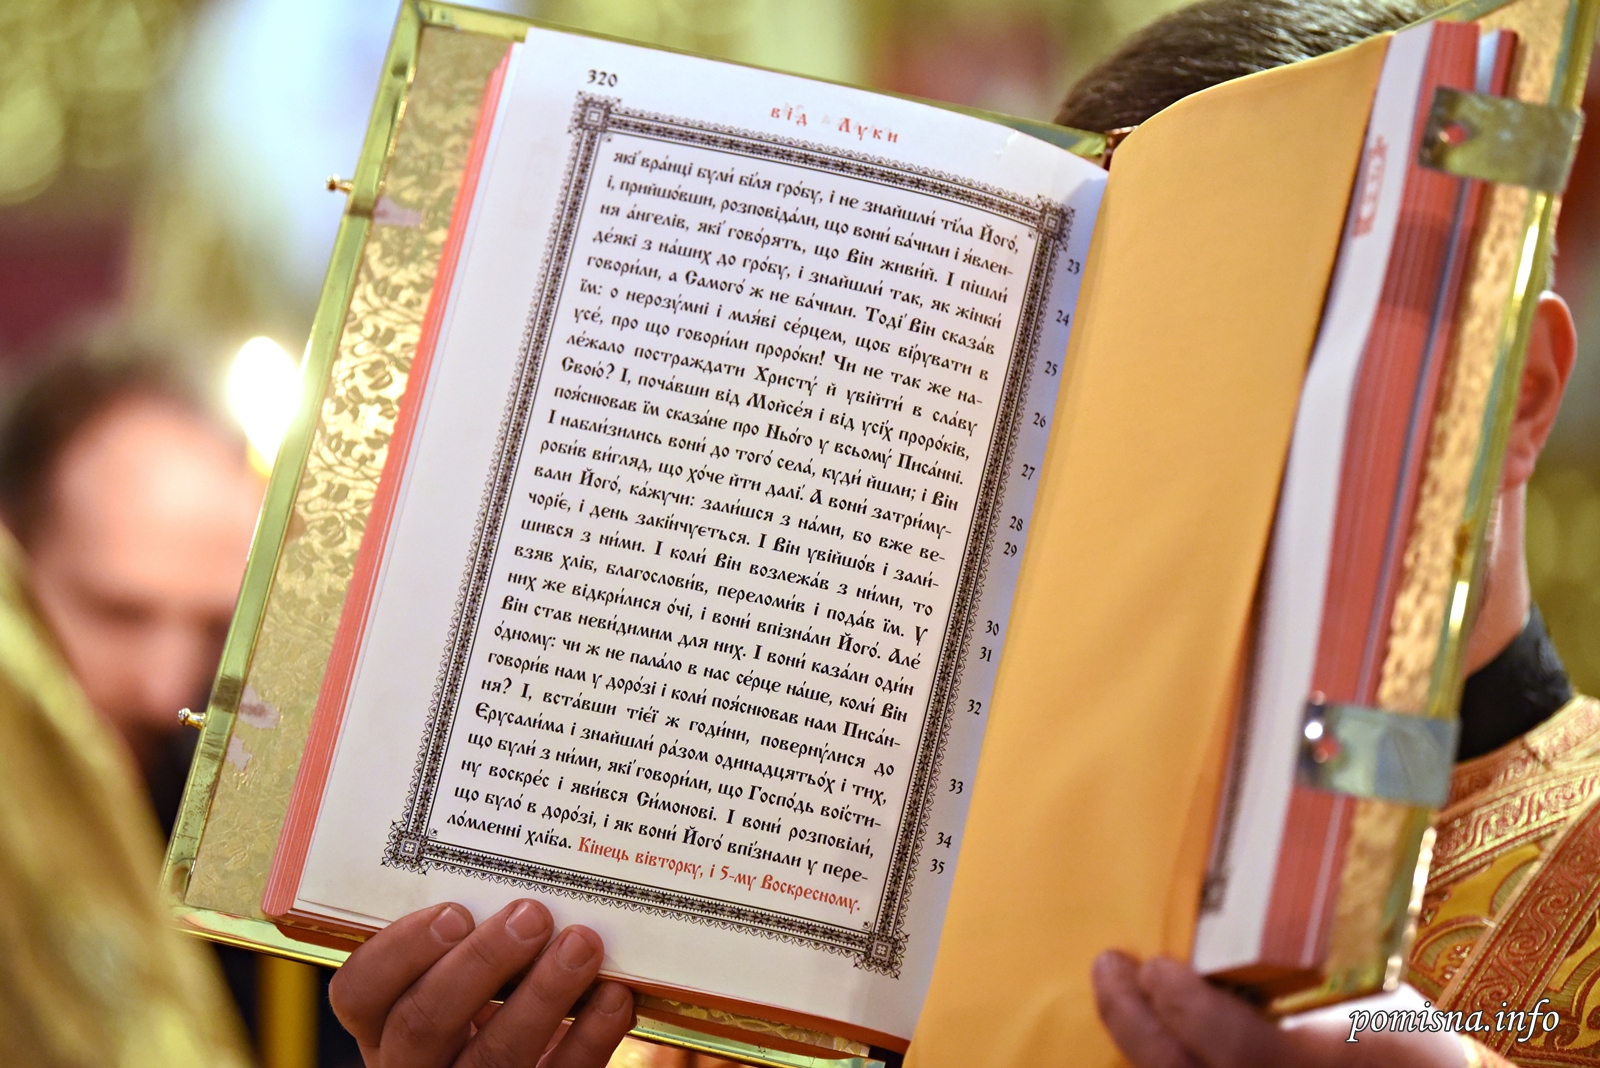 320
від Луки
які́ вра́нці були́ бі́ля гро́бу, і не знайшли́ ті́ла Його́,
і, прийшо́вши, розповіда́ли, що вони́ ба́чили і я́влен-
ня а́нгелів, які́ гово́рять, що Він живи́й. І пішли́
де́які з на́ших до гро́бу, і знайшли́ так, як жінки́
говори́ли, а Самого́ ж не ба́чили. Тоді́ Він сказа́в
їм: о нерозу́мні і мля́ві се́рцем, щоб ві́рувати в
усе́, про що говори́ли проро́ки! Чи не так же на-
ле́жало постраждати Христу́ й увійти́ в сла́ву
Свою́? І, поча́вши від Мойсе́я і від усі́х проро́ків,
поя́снював їм сказа́не про Ньо́го у всьому́ Писа́нні.
І набли́зились вони́ до того́ села́, куди́ йшли; і Він
роби́в ви́гляд, що хо́че йти далі́. А вони́ затри́му-
вали Його́, ка́жучи: зали́шся з на́ми, бо вже ве-
чорі́є, і день закі́нчується. І Він увійшо́в і зали́-
шився з ни́ми. І коли́ Він возлежа́в з ни́ми, то
взяв хліб, благослови́в, переломи́в і пода́в їм. У
них же відкри́лися о́чі, і вони́ впізна́ли Його́. Але́
Він став неви́димим для них. І вони́ каза́ли оди́н
о́дному: чи ж не пала́ло в нас се́рце на́ше, коли́ Він
говори́в нам у доро́зі і коли́ поя́снював нам Писа́н-
ня? І, вста́вши тіє́ї ж годи́ни, поверну́лися до
Єрусали́ма і знайшли́ ра́зом одинадцятьо́х і тих,
що були́ з ни́ми, які́ говори́ли, що Госпо́дь вої́сти-
ну воскре́с і яви́вся Си́монові. І вони́ розпові́ли,
що було́ в доро́зі, і як вони́ Його́ впі́знали у пере-
ло́мленні хлі́ба. Кінець вівторку, і 5-му Воскресному.
23
24
25
26
27
28
29
30
31
32
33
34
35
pomisna.info